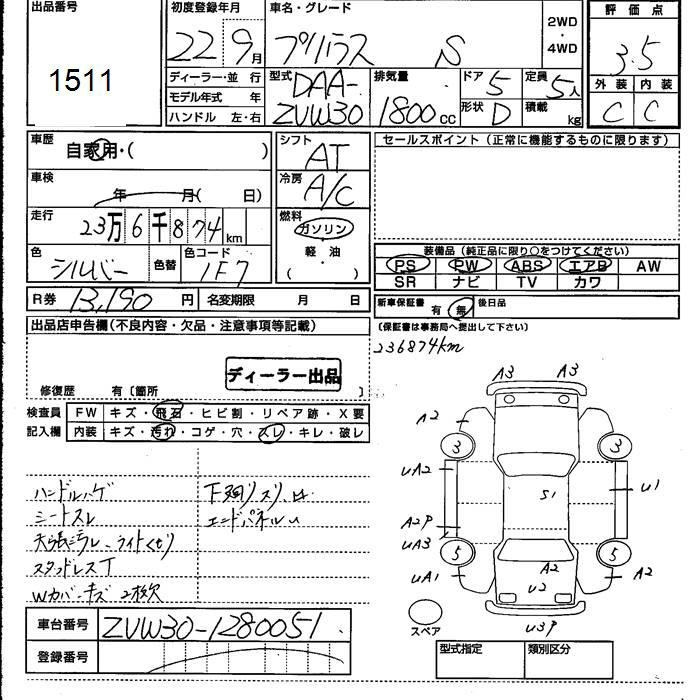 出品番号
1511
初度登録年月
22 9月
車名・グレード
プリウス S
2WD
・
4WD
評価点
3.5
外装 内装
C C
ディーラー・並行
モデル年式 年
ハンドル 左・右
型式
DAA-
ZVW30
排気量
1800cc
ドア 5
形状 D
定員 5人
積載 kg
車歴
自家用・( )
車検
年 月( 日)
走行
23万6千874km
色
シルバー
色替
色コード
1F7
シフト
AT
冷房
A/C
燃料
ガソリン
軽油
( )
セールスポイント(正常に機能するものに限ります)
装備品(純正品に限り○をつけてください)
PS PW ABS エアB AW
SR ナビ TV カワ
R券 13,190円 名変期限 月 日
新車保証書 有 無 後日品
(保証書は事務局へ提出して下さい)
236874km
出品店申告欄(不良内容・欠品・注意事項等記載)
ディーラー出品
修復歴 有〔箇所 〕
検査員
記入欄
FW キズ・飛石・ヒビ割・リペア跡・X要
内装 キズ・汚れ・コゲ・穴・スレ・キレ・破レ
ハンドルハゲ
シートスレ
天張汚レ、ライトくもり
スタッドレスT
Wカバーキズ 2枚欠
下廻りスリ、サ
エンドパネルU
A3 A3
A2
3 3
UA2
S1
U1
A2P
UA3
5 5
UA1
A2
A2
U2
U3P
スペア
車台番号 ZVW30-1280051
登録番号
型式指定 類別区分